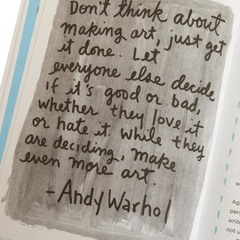 Don't think about
making art, just get
it done. Let
everyone else decide
if it's good or bad,
whether they love it
or hate it. While they
are deciding, make
even more art.
- Andy Warhol